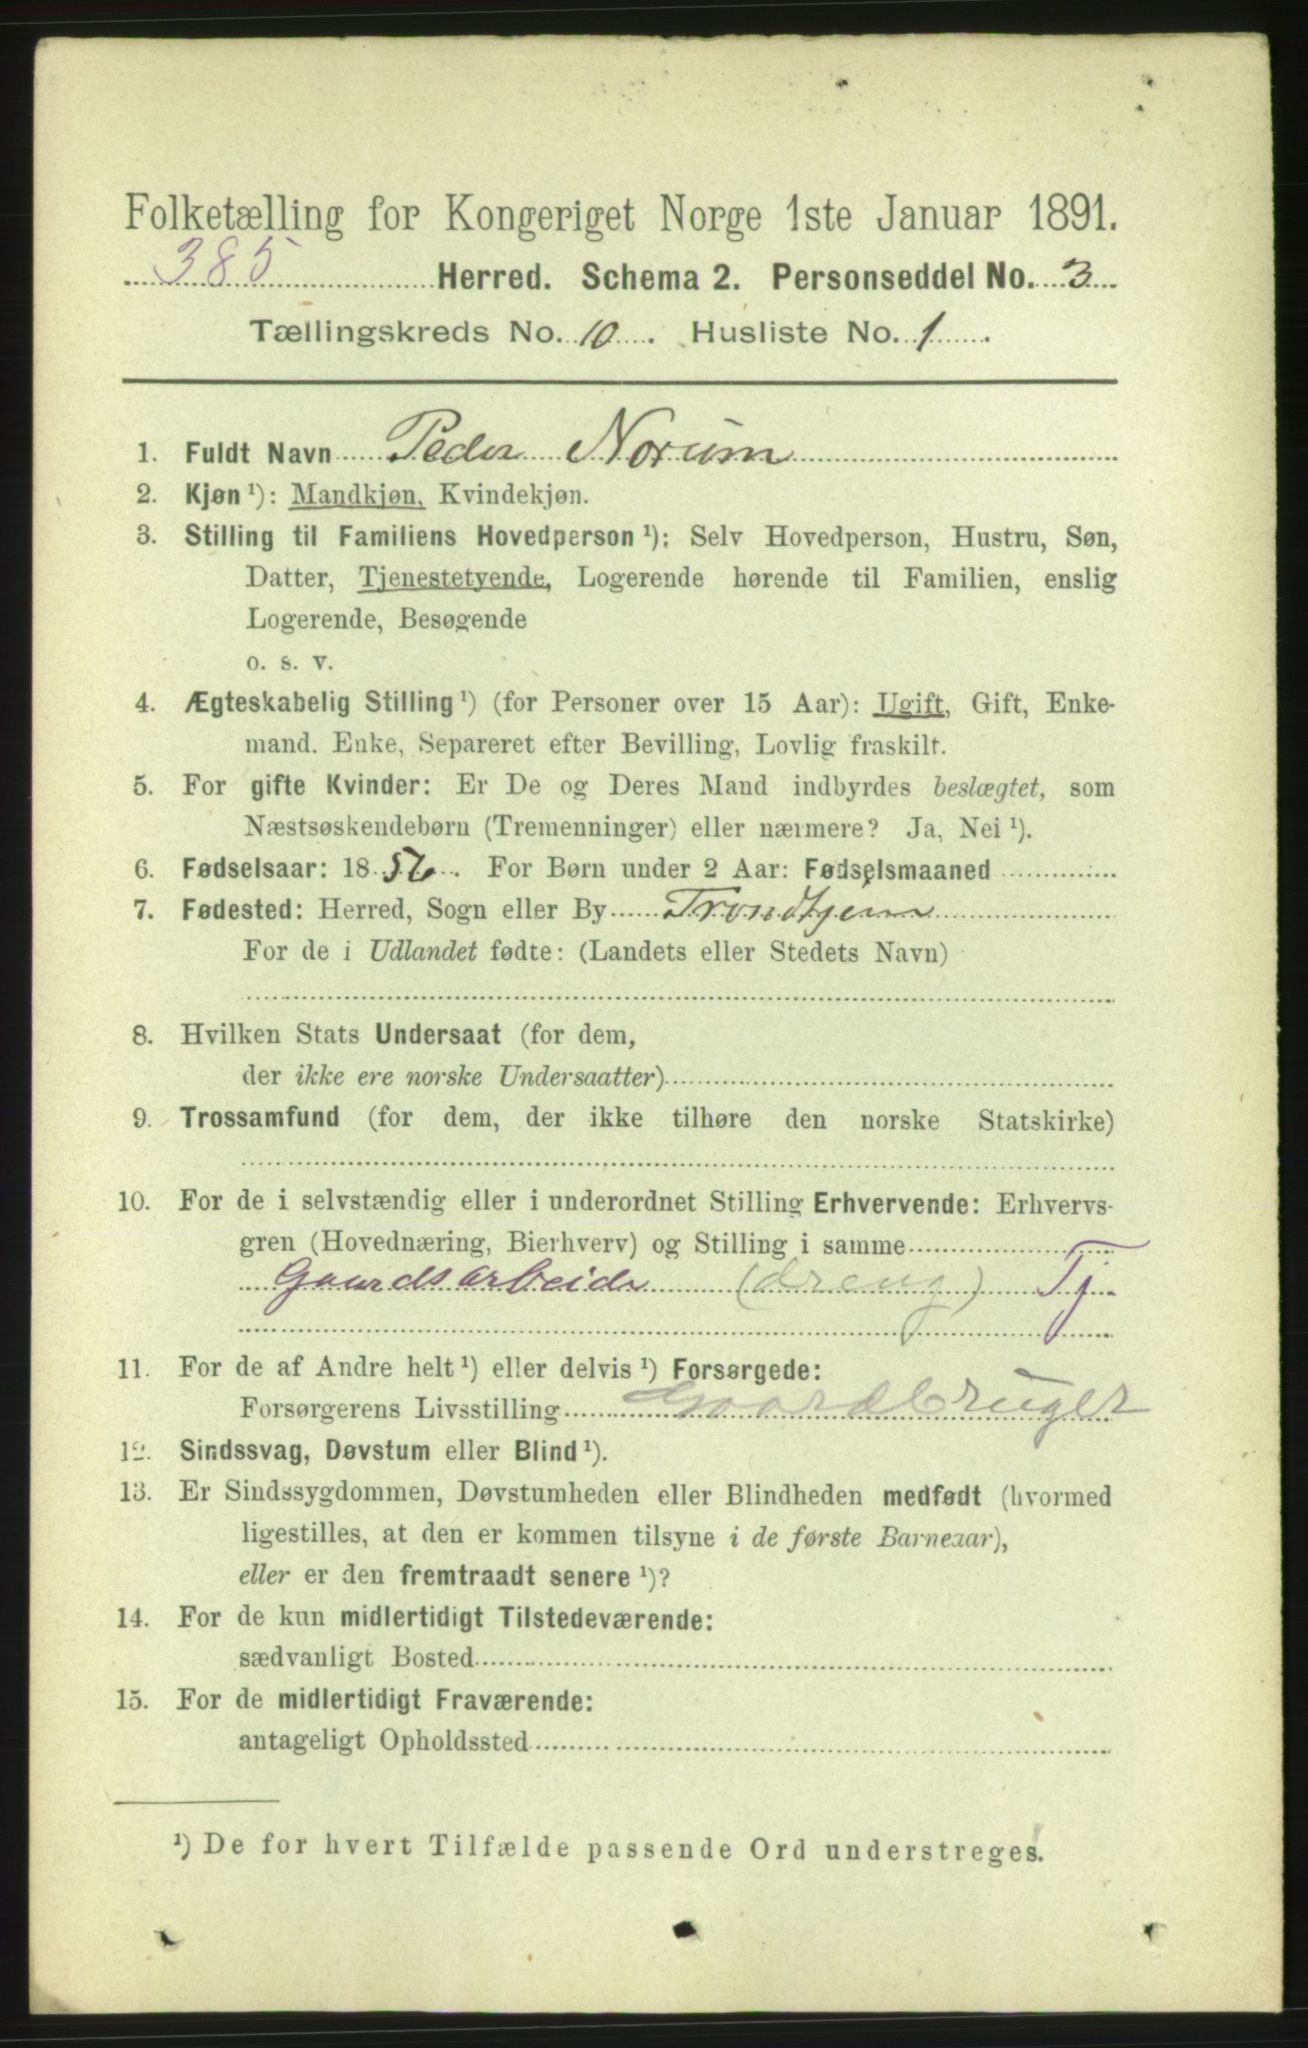 Folketælling for Kongeriget Norge 1ste Januar 1891.
385 Herred. Schema 2. Personseddel No. 3
Tællingskreds No. 10. Husliste No. 1.
1. Fuldt Navn Peder Norum
2. Kjøn ¹): Mandkjøn, Kvindekjøn.
3. Stilling til Familiens Hovedperson ¹): Selv Hovedperson, Hustru, Søn,
Datter, Tjenestetyende, Logerende hørende til Familien, enslig
Logerende, Besøgende
o. s. v.
4. Ægteskabelig Stilling ¹) (for Personer over 15 Aar): Ugift, Gift, Enke-
mand. Enke, Separeret efter Bevilling, Lovlig fraskilt.
5. For gifte Kvinder: Er De og Deres Mand indbyrdes beslægtet, som
Næstsøskendebørn (Tremenninger) eller nærmere? Ja, Nei ¹).
6. Fødselsaar: 1856. For Børn under 2 Aar: Fødselsmaaned
7. Fødested: Herred, Sogn eller By Trondhjem
For de i Udlandet fødte: (Landets eller Stedets Navn)
8. Hvilken Stats Undersaat (for dem,
der ikke ere norske Undersaatter)
9. Trossamfund (for dem, der ikke tilhøre den norske Statskirke)
10. For de i selvstændig eller i underordnet Stilling Erhvervende: Erhvervs-
gren (Hovednæring, Bierhverv) og Stilling i samme
Gaardsarbeide (dreng) Tj
11. For de af Andre helt ¹) eller delvis ¹) Forsørgede:
Forsørgerens Livsstilling Gaardbruger
12. Sindssvag, Døvstum eller Blind ¹).
13. Er Sindssygdommen, Døvstumheden eller Blindheden medfødt (hvormed
ligestilles, at den er kommen tilsyne i de første Barneaar),
eller er den fremtraadt senere ¹)?
14. For de kun midlertidigt Tilstedeværende:
sædvanligt Bosted
15. For de midlertidigt Fraværende:
antageligt Opholdssted
¹) De for hvert Tilfælde passende Ord understreges.